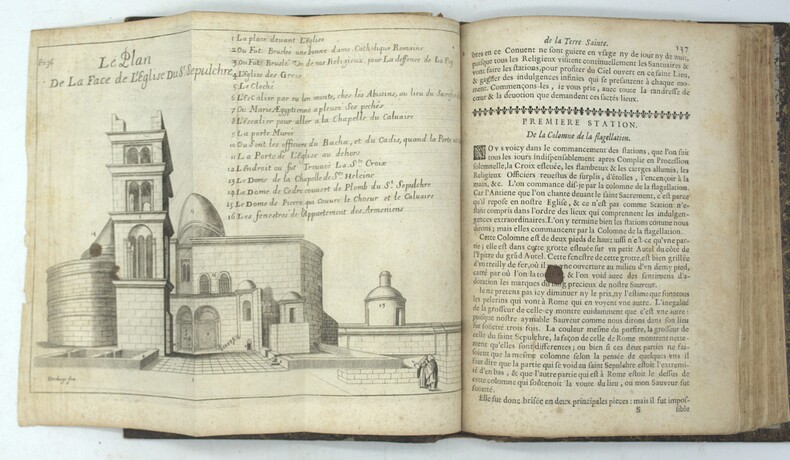 Le Plan
De La Face de L'Eglise Du St. Sepulchre
1 La place devant L'Eglise
2 Ou Fut Bruslée une bonne dame Catholique Romaine
3 Ou Fut Bruslé Un de nos Religieux, pour La deffence de La Foy
4 L'Eglise des Grecs
5 Le Cloché
7 Ou Marie Ægyptienne a pleuré Ses pechés
8 L'escalier pour aller a la Chapelle du Caluaire
9 La porte Murée
10 Ou Sont les officiers du Bacha, et du Cadis, quand la Porte
11 La Porte de L'Eglise au dehors
12 L'endroit ou fut Trouvée La Ste. Croix
13 Le Dome de la Chapelle de Ste. Heleine
14 Le Dome de Cedre couvert de Plomb du St. Sepulchre
15 Le Dome de Pierre, qui Couure Le Choeur et le Caluaire
16 Les fenestres de l'Appartement des Armeniens
15
1
de la Terre Sainte. 137
bres en ce Conuent ne sont guiere en vsage ny de iour ny de nuit,
puisque tous les Religieux visitent continuellement les Sanctuaires &
vont faire les stations, pour profiter du Ciel ouvert en ce saint Lieu,
& gagner des indulgences infinies qui se presentent à chaque mo-
ment. Commençons-les, ie vous prie, auec toute la tendresse de
cœur & la deuotion que demandent ces sacrés lieux.
PREMIERE STATION.
De la Colomne de la flagellation.
NOVS voicy dans le commancement des stations, que l'on fait
tous les iours indispensablement apres Complie en Procession
solemnelle, la Croix esleuée, les flambeaux & les cierges allumés, les
Religieux Officiers reuestus de surplis, d'étolles, l'encençoir à la
main, &c. L'on commance dis-je par la colomne de la flagellation.
Car l'Antiene que l'on chante deuant le saint Sacrement, c'est parce
qu'il repose en nostre Eglise, & ce n'est pas comme Station n'e-
stant compris dans l'ordre des lieux qui comprennent les indulgen-
ces extraordinaires. L'on y termine bien les stations comme nous
dirons; mais elles commencent par la Colomne de la flagellation.
Cette Colomne est de deux pieds de haut; aussi n'est-ce qu'vne par-
tie; elle est dans cette grotte esleuée sur vn petit Autel du côté de
l'Epitre du grãd Autel. Cette fenestre de cette grotte, est bien grillée
d'vn treilly de fer, où il y a vne ouverture au milieu d'vn demy pied,
carré par où l'on la & l'on void auec des sentimens d'a-
doration les marques du sang precieux de nostre Sauueur.
Ie ne pretens pas icy diminuer ny le prix, ny l'estime que font tous
les pelerins qui vont à Rome qui en voyent vne autre. L'inegalité
de la grosseur de celle-cy montre euidamment que c'est vne autre:
puisque nostre aymable Sauueur comme nous dirons dans son lieu
fut foüetté trois fois. La couleur mesme du porfire, la grosseur de
celle du saint Sepulchre, la façon de celle de Rome montrent nette-
ment qu'elles sont differentes; ou bien si ces deux parties ne fai-
soient que la mesme colomne selon la pensée de quelques vns il
faut dire que la partie qui se void au saint Sepulchre estoit l'extremi-
té d'en bas, & que l'autre partie qui est à Rome estoit le dessus de
cette colomne qui soûtenoit la voute du lieu, ou mon Sauueur fut
foüetté.
Elle fut donc brisée en deux principales pieces: mais il fut impos-
S sible